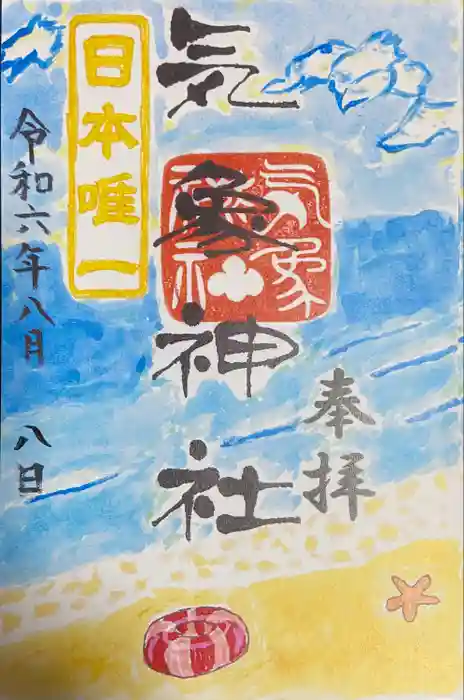 奉拝
気象神社
日本唯一
令和六年八月八日